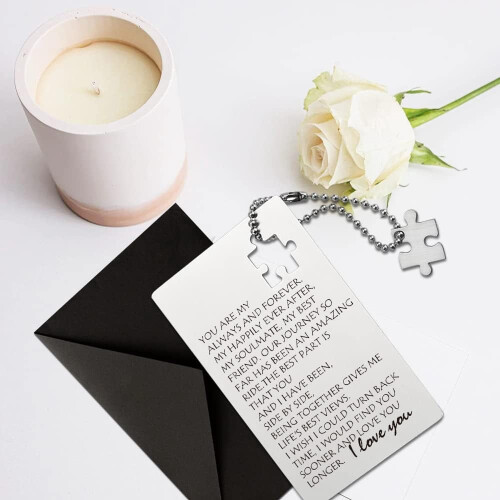 YOU ARE MY
ALWAYS AND FOREVER.
MY HAPPILY EVER AFTER,
MY SOULMATE, MY BEST
FRIEND. OUR JOURNEY SO
FAR HAS BEEN AN AMAZING
RIDE THE BEST PART IS
THAT YOU
AND I HAVE BEEN,
SIDE BY SIDE,
BEING TOGETHER GIVES ME
LIFE'S BEST VIEWS.
I WISH I COULD TURN BACK
TIME, I WOULD FIND YOU
SOONER AND LOVE YOU
LONGER. I love you